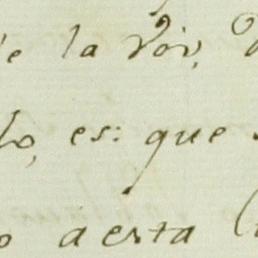 de la Voz,
lo, es: que
o aesta